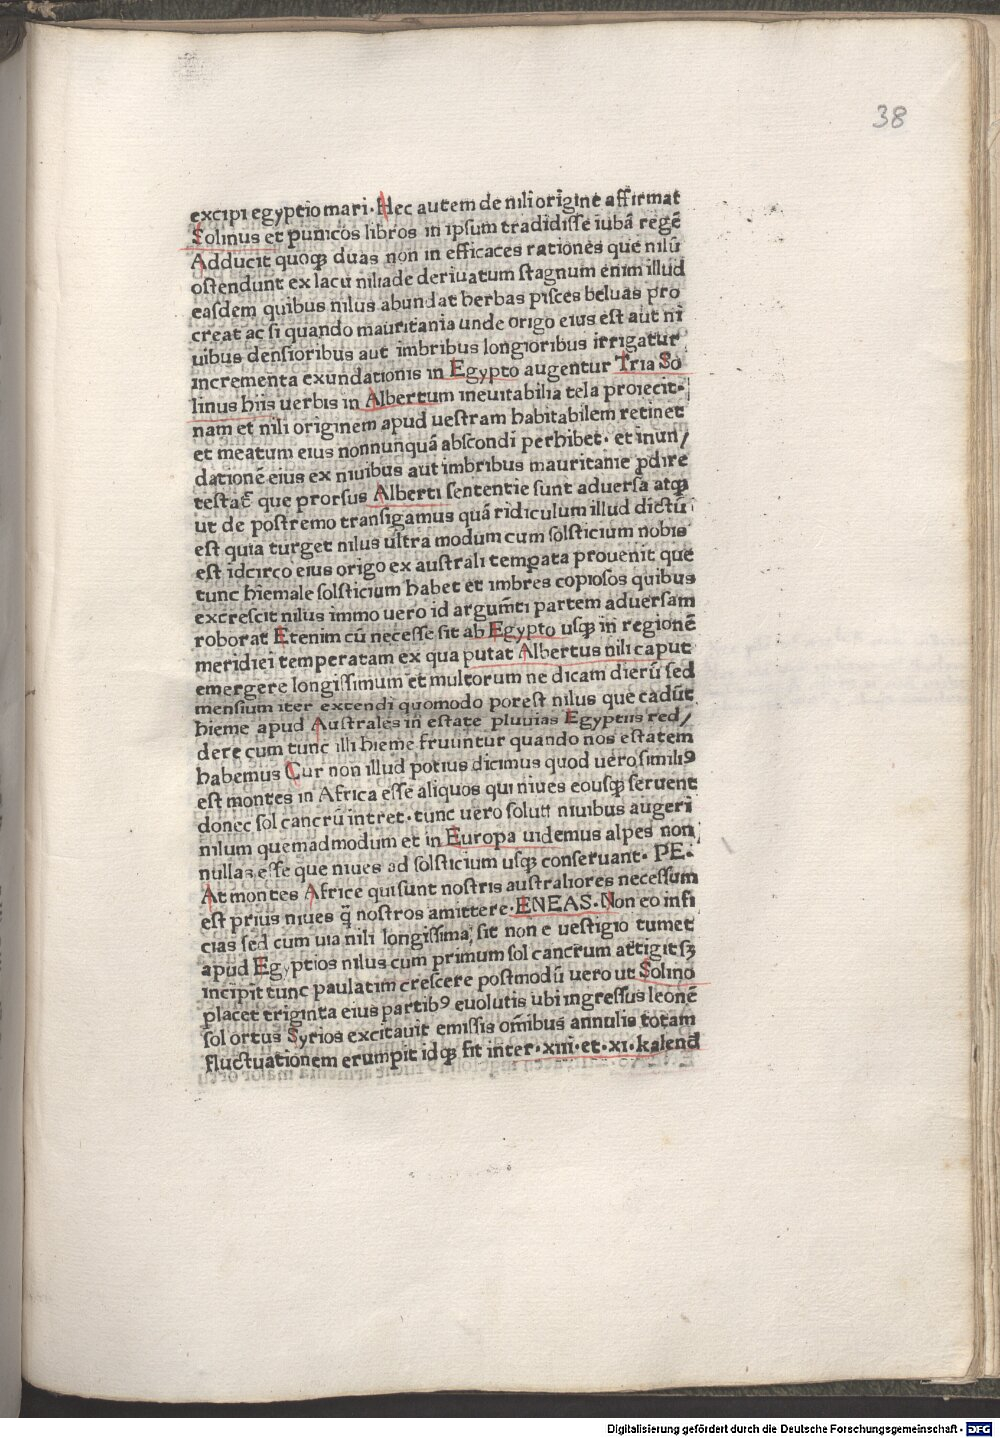 38
excipi egyptio mari· Hec autem de nili orīgine affirmat
Solinus et punicos libros in ipsum tradidisse iubā regē
Adducit quoqꝫ duas non in efficaces rationes que nilū
ostendunt ex lacu niliade deriuatum stagnum enim illud
easdem quibus nilus abundat herbas pisces beluas pro
creat ac si quando mauritania unde origo eius est aut ni
uibus densioribus aut imbribus longioribus irrigatur
incrementa exundationis in Egypto augentur Tria So
linus hiis uerbis in Albertum ineuitabilia tela proiecit·
nam et nili originem apud uestram habitabilem retinet
et meatum eius nonnunquā abscondi perhibet· et inun/
dationē eius ex niuibus aut imbribus mauritanie ꝓdire
testať que prorsus Alberti sententie sunt aduersa atqꝫ
ut de postremo transigamus quā ridiculum illud dictū
est quia turget nilus ultra modum cum solsticium nobis
est idcirco eius origo ex australi temꝑata prouenit que
tunc hiemale solsticium habet et imbres copiosos quibus
excrescit nilus immo uero id argum̄ti partem aduersam
roborat Etenim cū necesse sit ab Egypto usqꝫ in regionē
meridiei temperatam ex qua putat Albertus nili caput
emergere longissimum et multorum ne dicam dierū sed
mensium iter extendi quomodo porest nilus que cadūt
hieme apud Australes in estate pluuias Egyptiis red/
dere cum tunc illi hieme fruuntur quando nos estatem
habemus Cur non illud potius dicimus quod uero similiꝰ
est montes in Africa esse aliquos qui niues eousqꝫ seruent
donec sol cancrū intret· tunc uero soluti niuibus augeri
nilum quemadmodum et in Europa uidemus alpes non
nullas esse que niues ad solsticium usqꝫ conseruant· PE·
At montes Africe qui sunt nostris australiores necessum
est prius niues q̄ nostros amittere· ENEAS· Non eo infi
cias sed cum uia nili longissima sit non e uestigio tumet
apud Egyptios nilus cum primum sol cancrum attigit sꝫ
incipit tunc paulatim crescere postmodū uero ut Solino
placet triginta eius partibꝰ euolutis ubi ingressus leonē
sol ortus Syrios excitauit emissis om̄ibus annulis totam
fluctuationem erumpit idqꝫ fit inter· xiii· et· xi· kalend
Digitalisierung gefördert durch die Deutsche Forschungsgemeinschaft - DFG